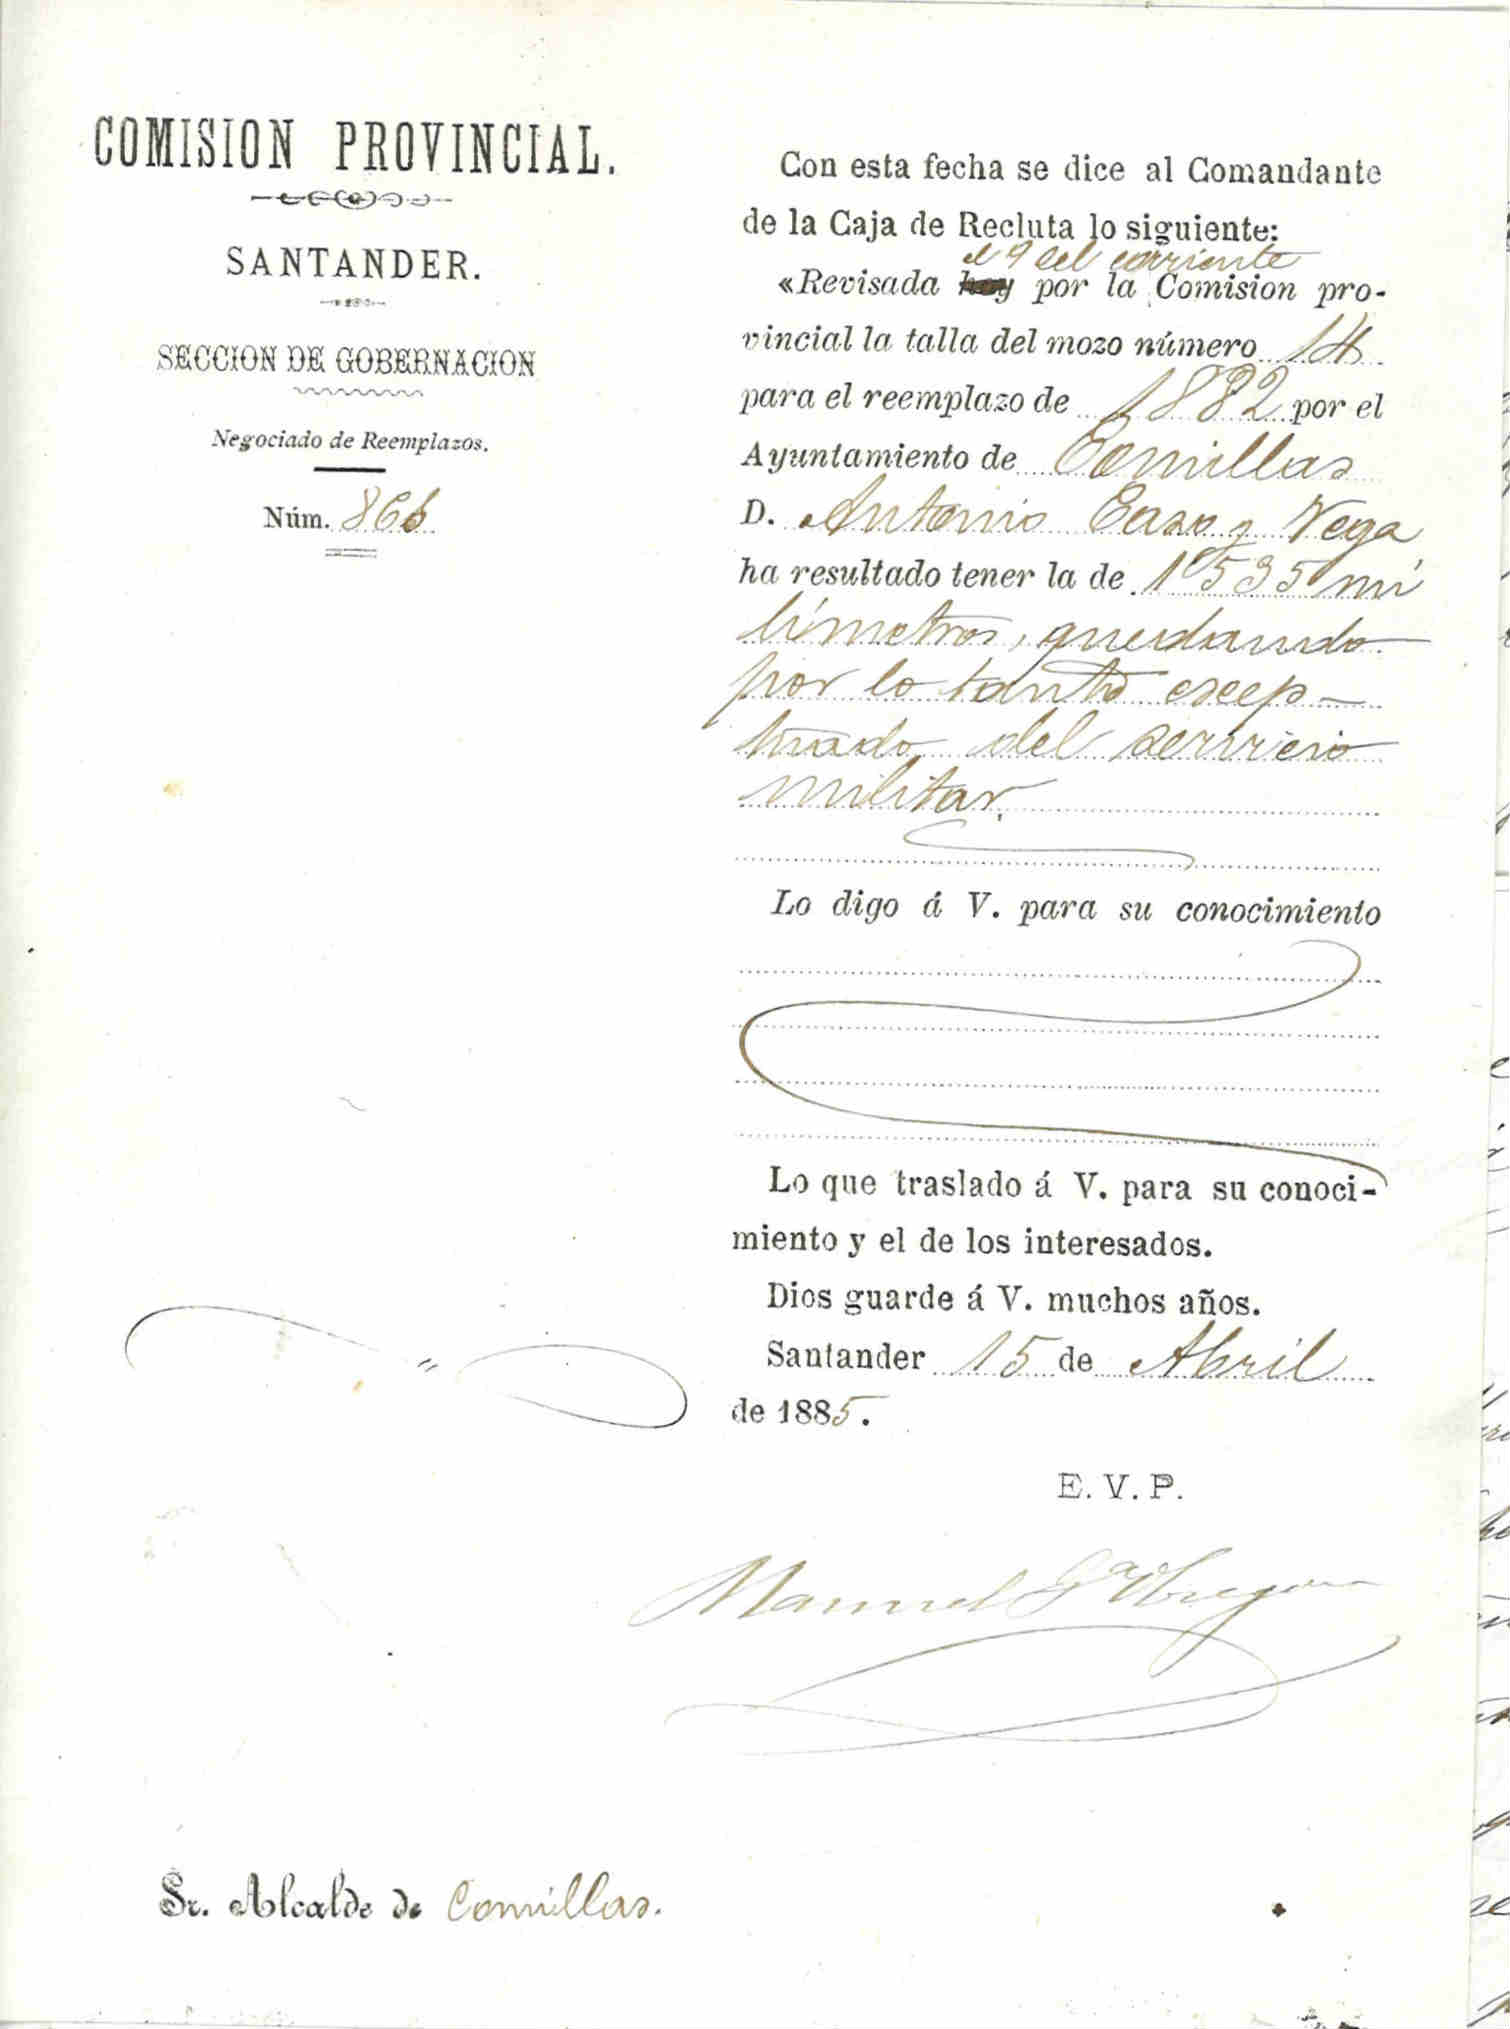 COMISION PROVINCIAL.
SANTANDER.
SECCION DE GOBERNACION
Negociado de Reemplazos.
Núm. 866
Con esta fecha se dice al Comandante
de la Caja de Recluta lo siguiente:
el 9 del corriente
«Revisada hoy por la Comision pro-
vincial la talla del mozo número 14
para el reemplazo de 1882 por el
Ayuntamiento de Comillas
D. Antonio y Vega
ha resultado tener la de 1'535 mi
límetros, quedando
por lo tanto escep-
tuado del servicio
militar.
Lo digo á V. para su conocimiento
Lo que traslado á V. para su conoci-
miento y el de los interesados.
Dios guarde á V. muchos años.
Santander 15 de Abril
de 1885.
E. V. P.
Manuel Gª Obregon
Sr. Alcalde de Comillas.